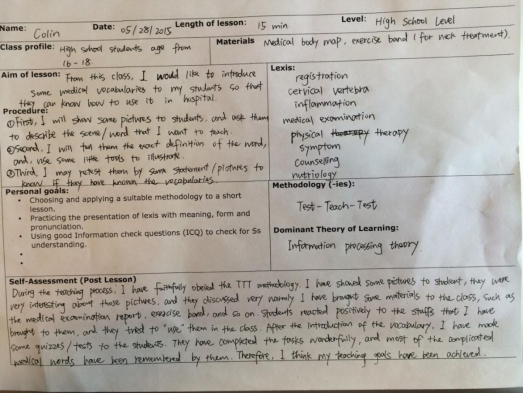 Name: Colin Date: 05/28/2015 Length of lesson: 15 min Level: High School Level
Class profile: High school students age from
16 - 18
Materials Medical body map, exercise band (for neck treatment).
Aim of lesson: From this class, I would like to introduce
some medical vocabularies to my students so that
they can know how to use it in hospital.
Procedure:
①First, I will show some pictures to students, and ask them
to describe the scene/word that I want to teach.
②Second, I will tell them the exact definition of the word,
and, use some little tools to illustrate.
③Third, I may retest them by some statement/pictures to
know if they have known the vocabularies.
Lexis:
registration
cervical vertebra
inflammation
medical examination
physical therapy therapy
symptom
counselling
nutriology
Personal goals:
• Choosing and applying a suitable methodology to a short
lesson.
• Practicing the presentation of lexis with meaning, form and
pronunciation.
• Using good Information check questions (ICQ) to check for Ss
understanding.
•
•
Methodology (-ies):
Test-Teach-Test
Dominant Theory of Learning:
Information processing theory.
Self-Assessment (Post Lesson)
During the teaching process, I have faithfully obeied the TTT methodology. I have showed some pictures to student, they were
very interesting about those pictures, and they discussed very I have brought some materials to the class, such as
the medical examination report, exercise band, and so on. Students reacted positively to the stuffs that I have
brought to them, and they tried to "use" them in the class. After the introduction of the vocabulary, I have made
some quizzes/tests to the students. They have completed the tasks wonderfully, and most of the complicated
medical words have been remembered by them. Therefore, I think my teaching goals have been achieved.